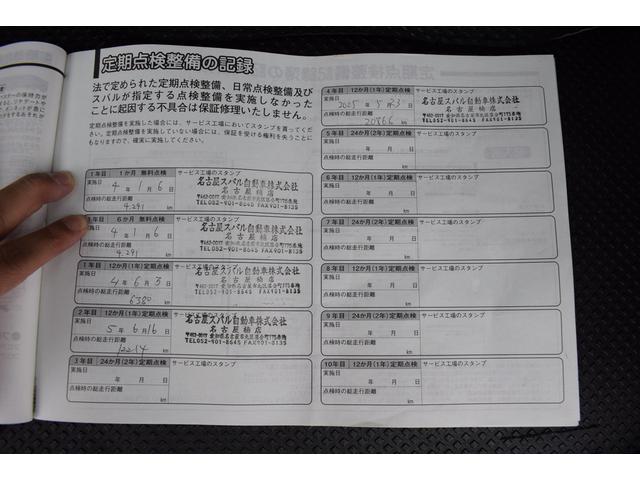 定期点検整備の記録
法で定められた定期点検整備、日常点検整備及び
スバルが指定する点検整備を実施しなかった
ことに起因する不具合は保証修理いたしません。
定期点検整備を実施した場合には、サービス工場においてスタンプを貰ってくだ
さい。定期点検整備を実施していない場合には、保証を受ける権利を失うことに
もなりますので、確実に実施してください。
1年目 1か月 無料点検 サービス工場のスタンプ
実施日
4年1月6日
点検時の総走行距離
4.291 km
名古屋スバル自動車株式会社
名古屋楠店
〒462-0011 愛知県名古屋市北区五分町175番地
TEL052-901-8645 FAX901-8135
1年目 6か月 無料点検 サービス工場のスタンプ
実施日
4年1月6日
点検時の総走行距離
4.291 km
名古屋スバル自動車株式会社
名古屋楠店
TEL052-901-8645 FAX901-8135
1年目 12か月(1年)定期点検 サービス工場のスタンプ
実施日
4年6月3日
点検時の総走行距離
6380 km
名古屋スバル自動車株式会社
名古屋楠店
TEL052-901-8645 FAX901-8135
2年目 12か月(1年)定期点検 サービス工場のスタンプ
実施日
5年6月16日
点検時の総走行距離
12214 km
名古屋スバル自動車株式会社
名古屋楠店
TEL052-901-8645 FAX901-8135
3年目 24か月(2年)定期点検 サービス工場のスタンプ
実施日
年 月 日
点検時の総走行距離
km
4年目 12か月(1年)定期点検 サービス工場のスタンプ
実施日
2025年5月23日
点検時の総走行距離
20866 km
名古屋スバル自動車株式会社
名古屋楠店
TEL052-901-8645 FAX901-8135
5年目 24か月(2年)定期点検 サービス工場のスタンプ
実施日
年 月 日
点検時の総走行距離
km
6年目 12か月(1年)定期点検 サービス工場のスタンプ
実施日
年 月 日
点検時の総走行距離
km
7年目 24か月(2年)定期点検 サービス工場のスタンプ
実施日
年 月 日
点検時の総走行距離
km
8年目 12か月(1年)定期点検 サービス工場のスタンプ
実施日
年 月 日
点検時の総走行距離
km
9年目 24か月(2年)定期点検 サービス工場のスタンプ
実施日
年 月 日
点検時の総走行距離
km
10年目 12か月(1年)定期点検 サービス工場のスタンプ
実施日
年 月 日
点検時の総走行距離
km